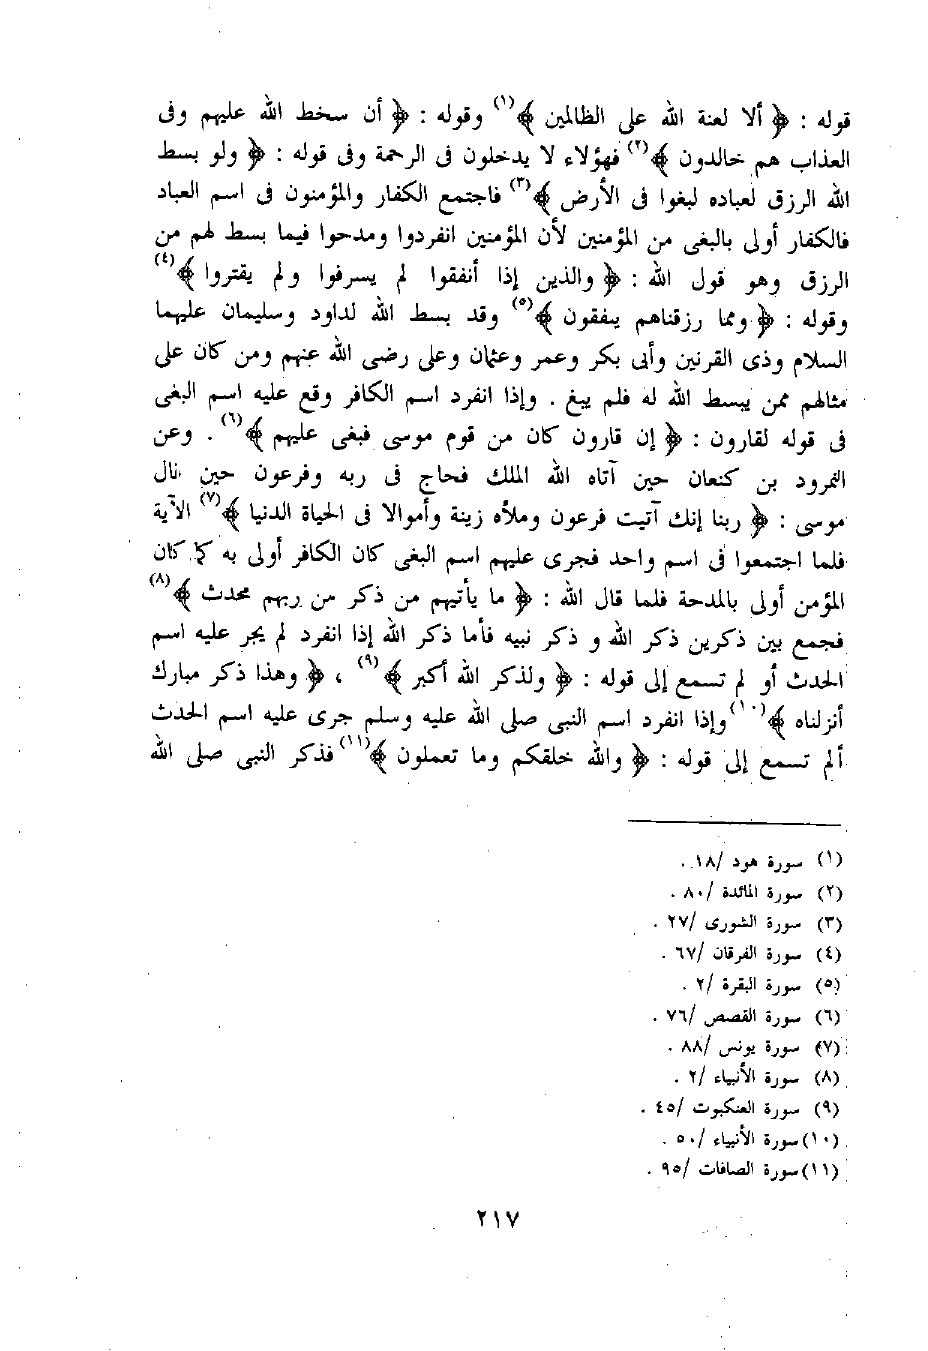 قوله : ﴿ ألا لعنة الله على الظالمين ﴾(١) وقوله : ﴿ أن سخط الله عليهم وفى
العذاب هم خالدون ﴾(٢) فهؤلاء لا يدخلون فى الرحمة وفى قوله : ﴿ ولو بسط
الله الرزق لعباده لبغوا فى الأرض ﴾(٣) فاجتمع الكفار والمؤمنون فى اسم العباد
فالكفار أولى بالبغى من المؤمنين لأن المؤمنين انفردوا ومدحوا فيما بسط لهم من
الرزق وهو قول الله : ﴿ والذين إذا أنفقوا لم يسرفوا ولم يقتروا ﴾(٤)
وقوله : ﴿ ومما رزقناهم ينفقون ﴾(٥) وقد بسط الله لداود وسليمان عليهما
السلام وذى القرنين وأبى بكر وعمر وعثمان وعلى رضى الله عنهم ومن كان على
مثالهم ممن يبسط الله له فلم يبغ . وإذا انفرد اسم الكافر وقع عليه اسم البغى
فى قوله لقارون : ﴿ إن قارون كان من قوم موسى فبغى عليهم ﴾(٦) . وعن
النمرود بن كنعان حين آتاه الله الملك فحاج فى ربه وفرعون حين نال
موسى : ﴿ ربنا إنك آتيت فرعون وملأه زينة وأموالا فى الحياة الدنيا ﴾(٧) الآية
فلما اجتمعوا فى اسم واحد فجرى عليهم اسم البغى كان الكافر أولى به كما كان
المؤمن أولى بالمدحة فلما قال الله : ﴿ ما يأتيهم من ذكر من ربهم محدث ﴾(٨)
فجمع بين ذكرين ذكر الله و ذكر نبيه فأما ذكر الله إذا انفرد لم يجر عليه اسم
الحدث أو لم تسمع إلى قوله : ﴿ ولذكر الله أكبر ﴾(٩) ، ﴿ وهذا ذكر مبارك
أنزلناه ﴾(١٠) وإذا انفرد اسم النبى صلى الله عليه وسلم جرى عليه اسم الحدث
ألم تسمع إلى قوله : ﴿ والله خلقكم وما تعملون ﴾(١١) فذكر النبى صلى الله
(١) سورة هود /١٨ .
(٢) سورة المائدة /٨٠ .
(٣) سورة الشورى /٢٧ .
(٤) سورة الفرقان /٦٧ .
(٥) سورة البقرة /٢ .
(٦) سورة القصص /٧٦ .
(٧) سورة يونس /٨٨ .
(٨) سورة الأنبياء /٢ .
(٩) سورة العنكبوت /٤٥ .
(١٠) سورة الأنبياء /٥٠ .
(١١) سورة الصافات /٩٥ .
٢١٧